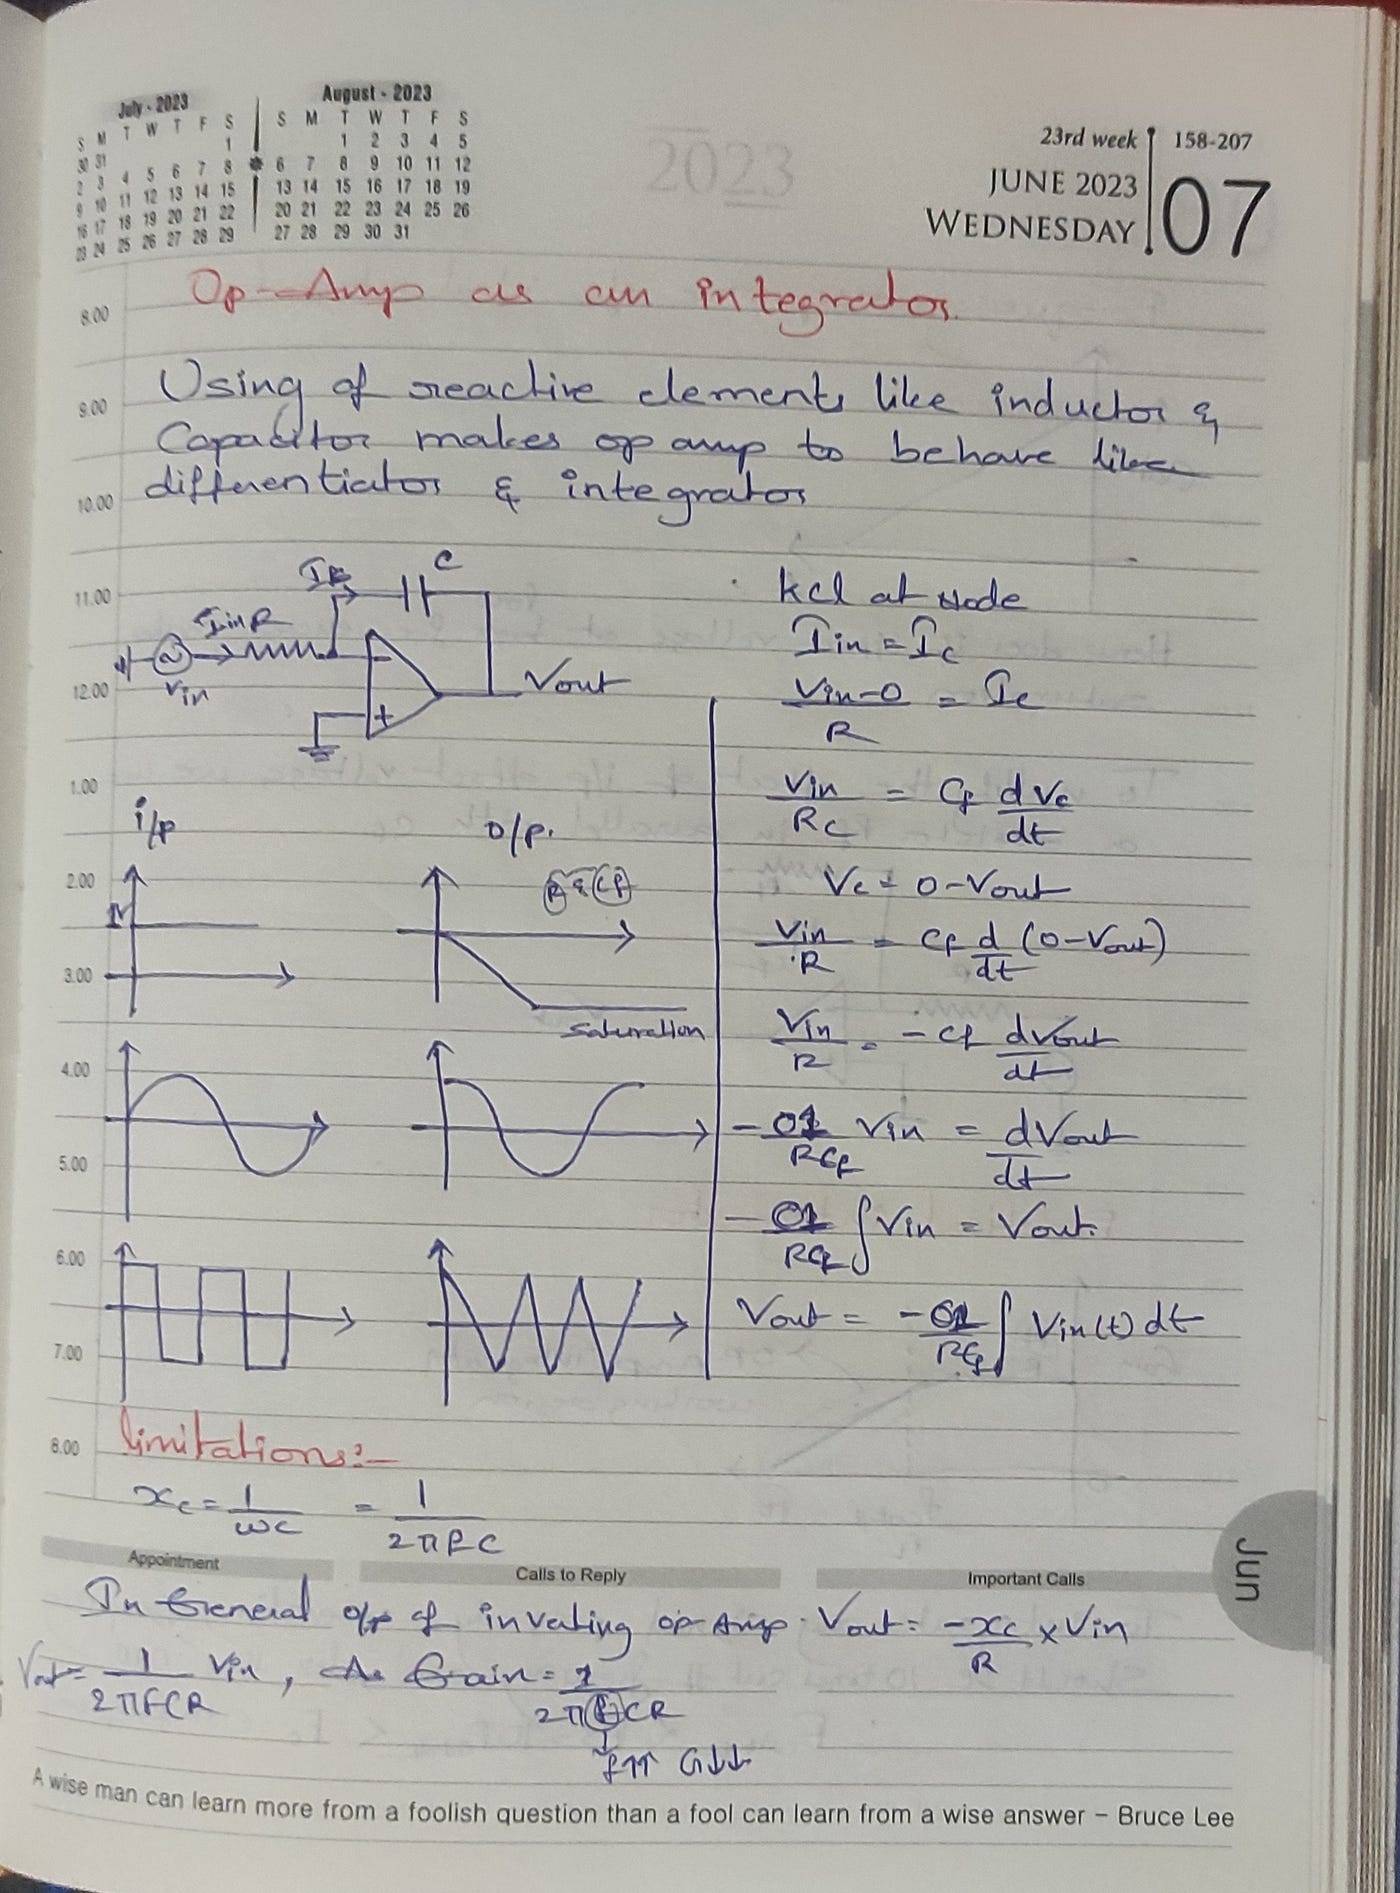 July - 2023
S M T W T F S
30 31 1
2 3 4 5 6 7 8
9 10 11 12 13 14 15
16 17 18 19 20 21 22
23 24 25 26 27 28 29
August - 2023
S M T W T F S
1 2 3 4 5
6 7 8 9 10 11 12
13 14 15 16 17 18 19
20 21 22 23 24 25 26
27 28 29 30 31
2023
23rd week 158-207
JUNE 2023
WEDNESDAY
07
Op-Amp as an integrator
8.00
Using of reactive elements like inductor &
9.00
Capacitor makes op amp to behave like
differentiator & integrator
10.00
11.00
C
Iin R
Vin
Vout
- +
12.00
kcl at Node
Iin = Ic
Vin-0 / R = Ic
1.00
Vin / RC = Cf dVc / dt
i/p
o/p.
2.00
R & Cf
Vc = 0-Vout
1V
Vin / R = Cf d / dt (0-Vout)
3.00
Saturation
Vin / R = -Cf dVout / dt
4.00
- 1 / RCf Vin = dVout / dt
5.00
- 1 / RCf ∫ Vin = Vout.
6.00
Vout = -1 / RCf ∫ Vin(t) dt
7.00
limitations:-
8.00
xc = 1 / ωc = 1 / 2πfC
Appointment
Calls to Reply
Important Calls
In General o/p of inverting op-Amp. Vout = -xc / R × Vin
Vout = 1 / 2πfCR Vin, As Gain = 1 / 2πfCR
f↑↑ G↓↓
A wise man can learn more from a foolish question than a fool can learn from a wise answer – Bruce Lee
Jun